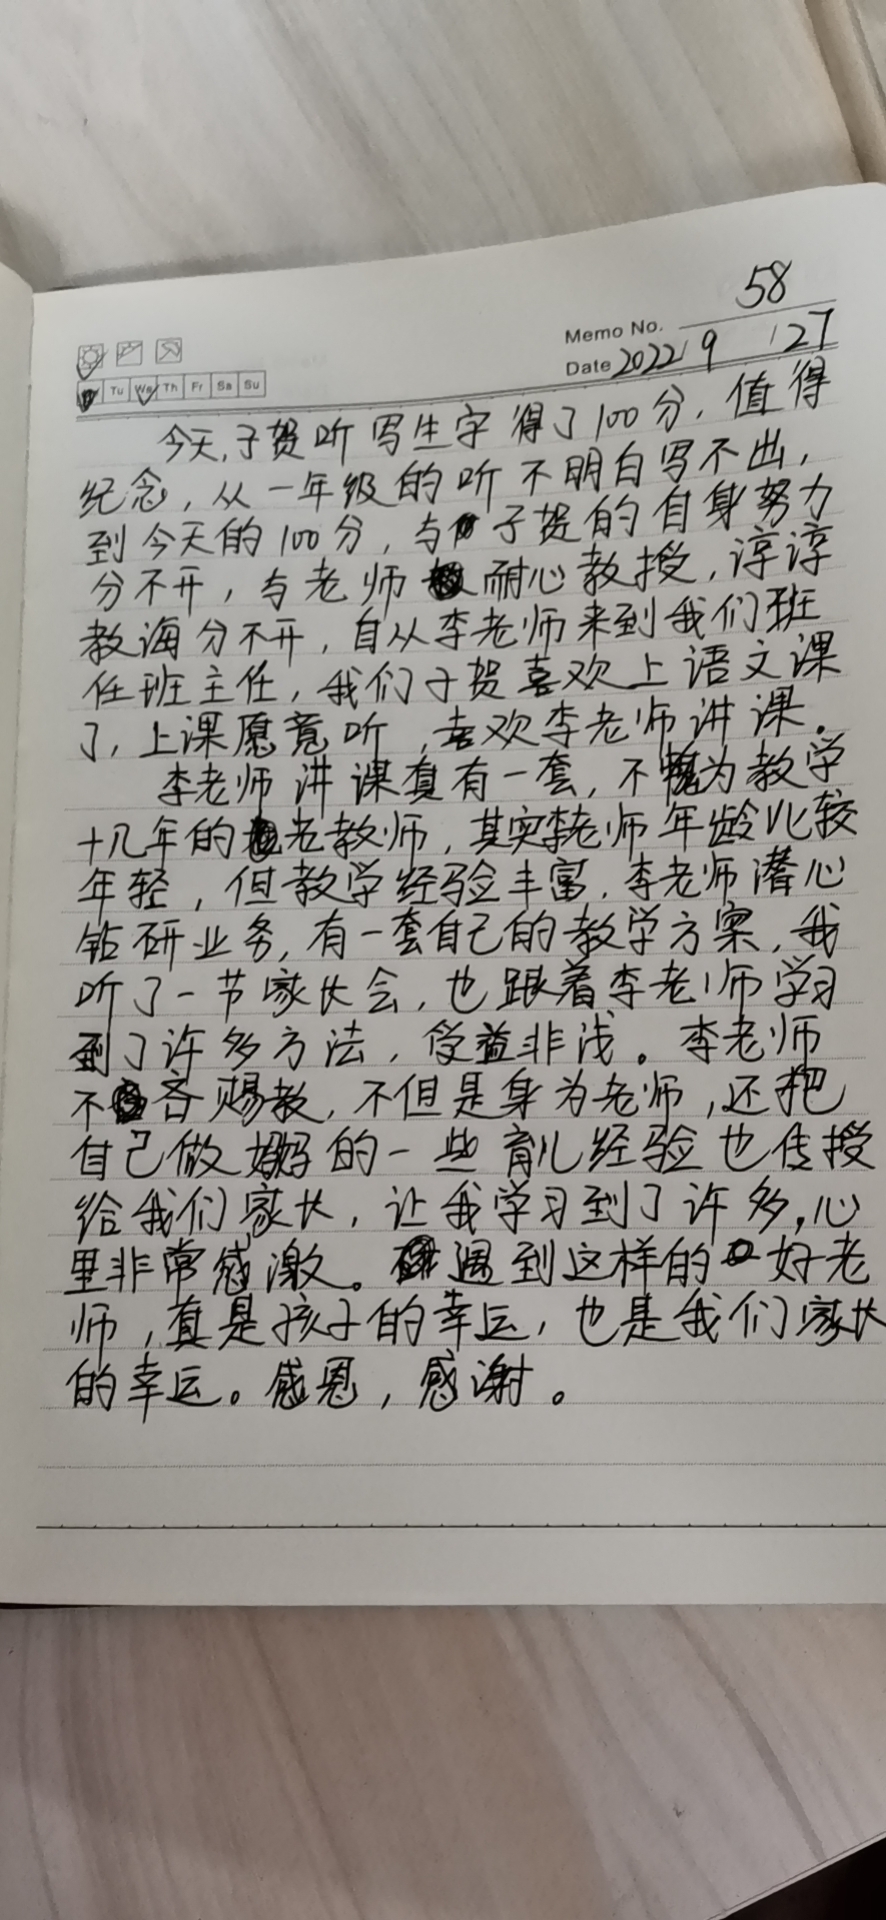 58
Memo No.
Date 2022 9 27
Tu We Th Fr Sa Su
今天,子贺听写生字得了100分,值得
纪念,从一年级的听不明白写不出,
到今天的100分,与子贺的自身努力
分不开,与老师耐心教授,谆谆
教诲分不开,自从李老师来到我们班
任班主任,我们子贺喜欢上语文课
了,上课愿意听,喜欢李老师讲课。
李老师讲课真有一套,不愧为教学
十几年的老教师,其实李老师年龄比较
年轻,但教学经验丰富,李老师潜心
钻研业务,有一套自己的教学方案,我
听了一节家长会,也跟着李老师学习
到了许多方法,受益非浅。李老师
不吝赐教,不但是身为老师,还把
自己做妈妈的一些育儿经验也传授
给我们家长,让我学习到了许多,心
里非常感激。遇到这样的好老
师,真是孩子的幸运,也是我们家长
的幸运。感恩,感谢。